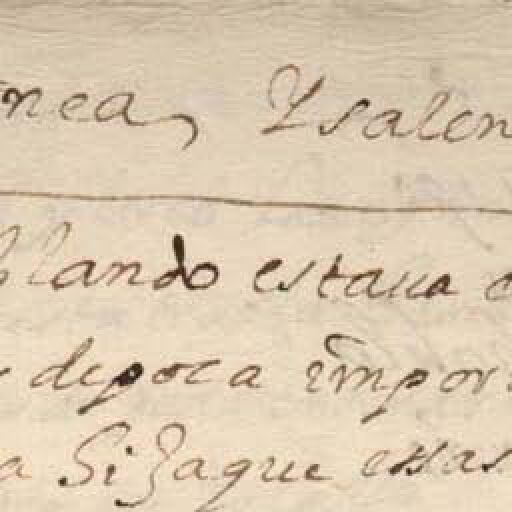 nea, Ysalen
blando estaua
depoca impor
a Si Zaque essas